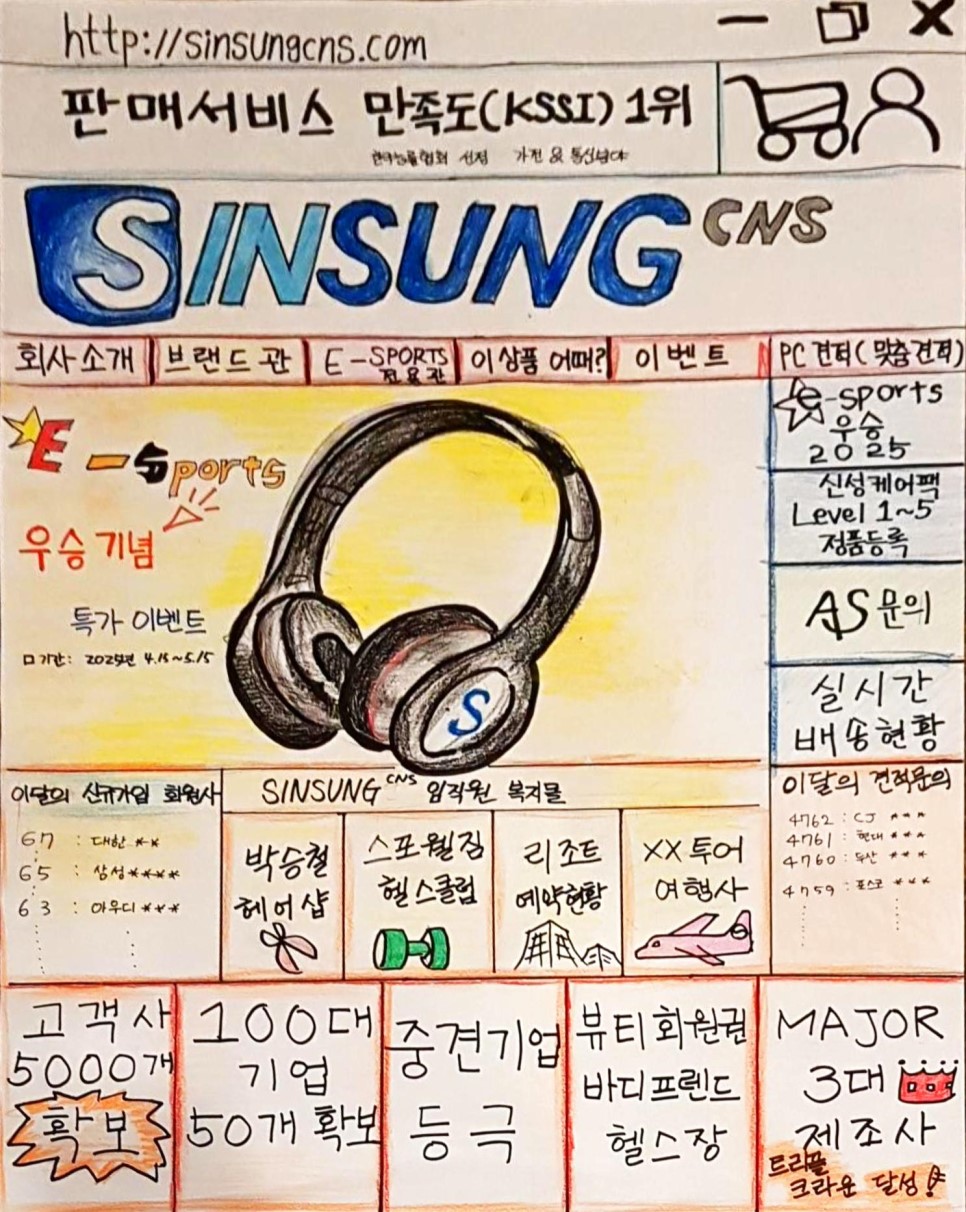 http://sinsungcns.com
판매서비스 만족도(KSSI) 1위
한국능률협회 선정 가전 & 통신분야
SINSUNG CNS
회사소개
브랜드관
E-SPORTS
전용관
이상품 어때?
이벤트
PC견적(맞춤견적)
E-Sports
우승기념
특가 이벤트
기간: 2025년 4.15~5.15
S
e-sports
우승
2025
신성케어팩
Level 1~5
정품등록
AS문의
실시간
배송현황
이달의 신규가입 회원사
67 : 대한**
65 : 삼성****
63 : 아우디***
SINSUNG CNS 임직원 복지몰
박승철
헤어샵
스포웰짐
헬스클럽
리조트
예약현황
XX투어
여행사
이달의 견적문의
4762 : CJ ***
4761 : 현대 ***
4760 : 두산 ***
4759 : 포스코 ***
고객사
5000개
확보
100대
기업
50개 확보
중견기업
등극
뷰티회원권
바디프렌드
헬스장
MAJOR
3대
제조사
트리플
크라운 달성!